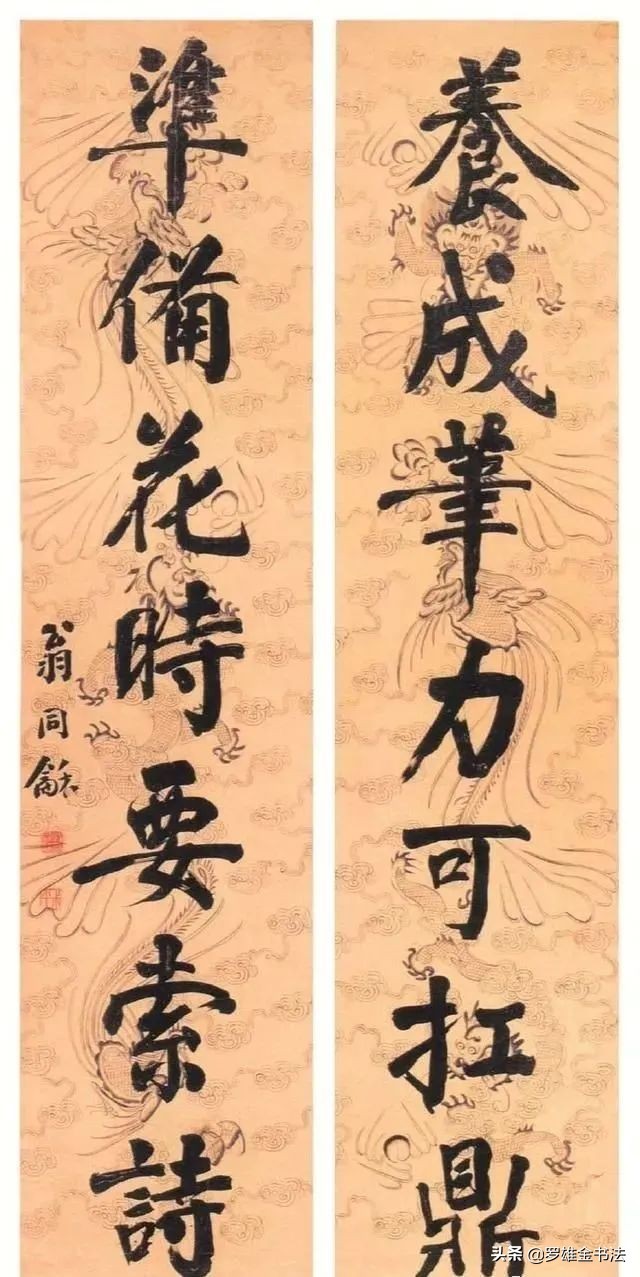 養成筆力可扛鼎
準備花時要索詩
翁同龢
头条 @罗雄金书法